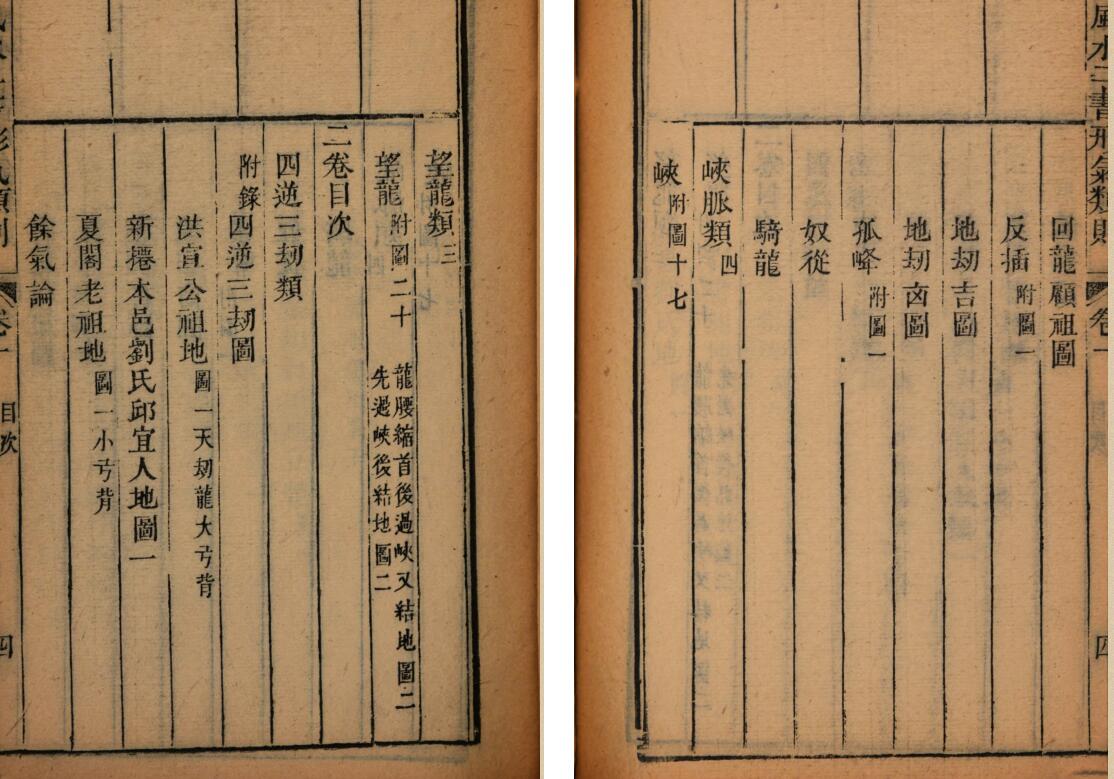 望龍類三
望龍附圖二十 龍腰縮首後過峽又結地圖二
先過峽後結地圖二
二卷目次
四逆三劫類
附錄四逆三劫圖
洪宣公祖地圖一天劫龍大亐背
新本邑劉氏邱宜人地圖一
夏閣老祖地圖一小亐背
餘氣論
目次 四
風水二書形氣類則 卷一 四
回龍顧祖圖
反插附圖一
地劫吉圖
地劫凶圖
孤峰附圖一
奴從
騎龍
峽脈類四
峽附圖十七